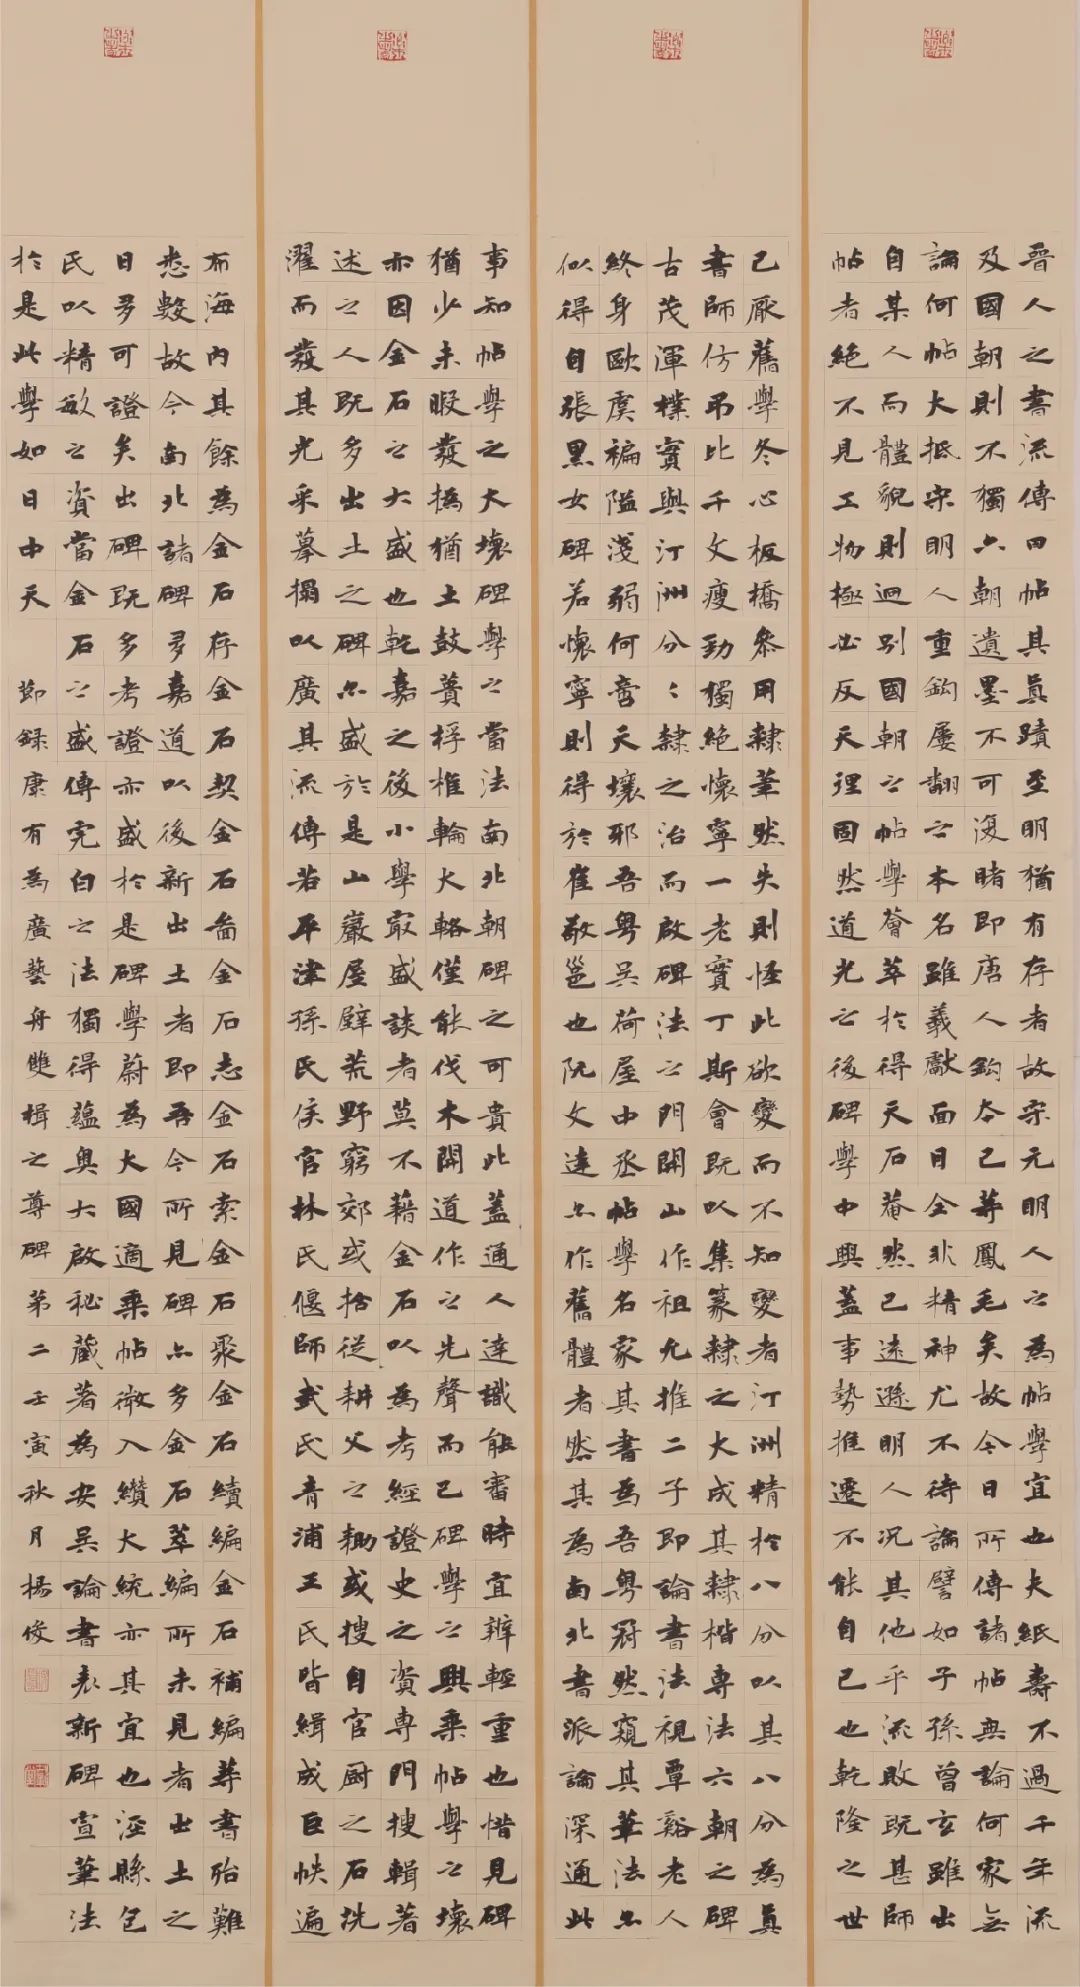 晉人之書流傳曰帖其真蹟至明猶有存者故宋元明人之為帖學宜也夫紙壽不過千年流
及國朝則不獨六朝遺墨不可復睹即唐人鈎本已等鳳毛矣故今日所傳諸帖無論何家無
論何帖大抵宋明人重鈎屢翻之本名雖羲獻面目全非精神尤不待論譬如子孫曾玄雖出
自某人而體貌則迥別國朝之帖學薈萃於得天石菴然已遠遜明人況其他乎流敗既甚師
帖者絕不見工物極必反天理固然道光之後碑學中興蓋事勢推遷不能自已也乾隆之世
已厭舊學冬心板橋參用隸筆然失則怪此欲變而不知變者汀洲精於八分以其八分為真
書師仿弔比干文瘦勁獨絕懷寧一老實丁斯會既以集篆隸之大成其隸楷專法六朝之碑
古茂渾樸實與汀洲分分隸之治而啟碑法之門開山作祖允推二子即論書法視覃谿老人
終身歐虞褊隘淺弱何啻天壤邪吾粵吳荷屋中丞帖學名家其書為吾粵冠然窺其筆法亦
似得自張黑女碑若懷寧則得於崔敬邕也阮文達亦作舊體者然其為南北書派論深通此
事知帖學之大壞碑學之當法南北朝碑之可貴此蓋通人達識能審時宜辨輕重也惜見碑
猶少未暇發撝猶土鼓蕢桴椎輪大輅僅能伐木開道作之先聲而已碑學之興乘帖學之壞
亦因金石之大盛也乾嘉之後小學最盛談者莫不藉金石以為考經證史之資專門搜輯著
述之人既多出土之碑亦盛於是山巖屋壁荒野窮郊或拾從耕父之鋤或搜自官厨之石洗
濯而發其光采摹搨以廣其流傳若平津孫氏侯官林氏偃師武氏青浦王氏皆緝成巨帙遍
布海內其餘為金石存金石契金石圖金石志金石索金石聚金石續編金石補編等書殆難
悉數故今南北諸碑多嘉道以後新出土者即吾今所見碑亦多金石萃編所未見者出土之
日多可證矣出碑既多考證亦盛於是碑學蔚為大國適乘帖微入纘大統亦其宜也涇縣包
民以精敏之資當金石之盛傳完白之法獨得蘊奧大啟秘藏著為安吳論書表新碑宣筆法
於是此學如日中天 節録康有為廣藝舟雙楫之尊碑第二壬寅秋月楊俊